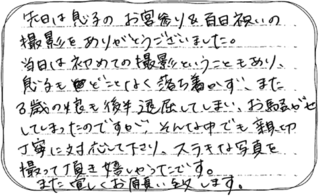 先日は息子のお宮参り&百日祝いの
撮影をありがとうございました。
当日は初めての撮影ということもあり、
息子もどことなく落ち着かず、また
3歳の娘も後半退屈してしまい、お騒がせ
してしまったのですが、そんな中でも親切
丁寧に対応して下さり、ステキな写真を
撮って頂き嬉しかったです。
また宜しくお願い致します。